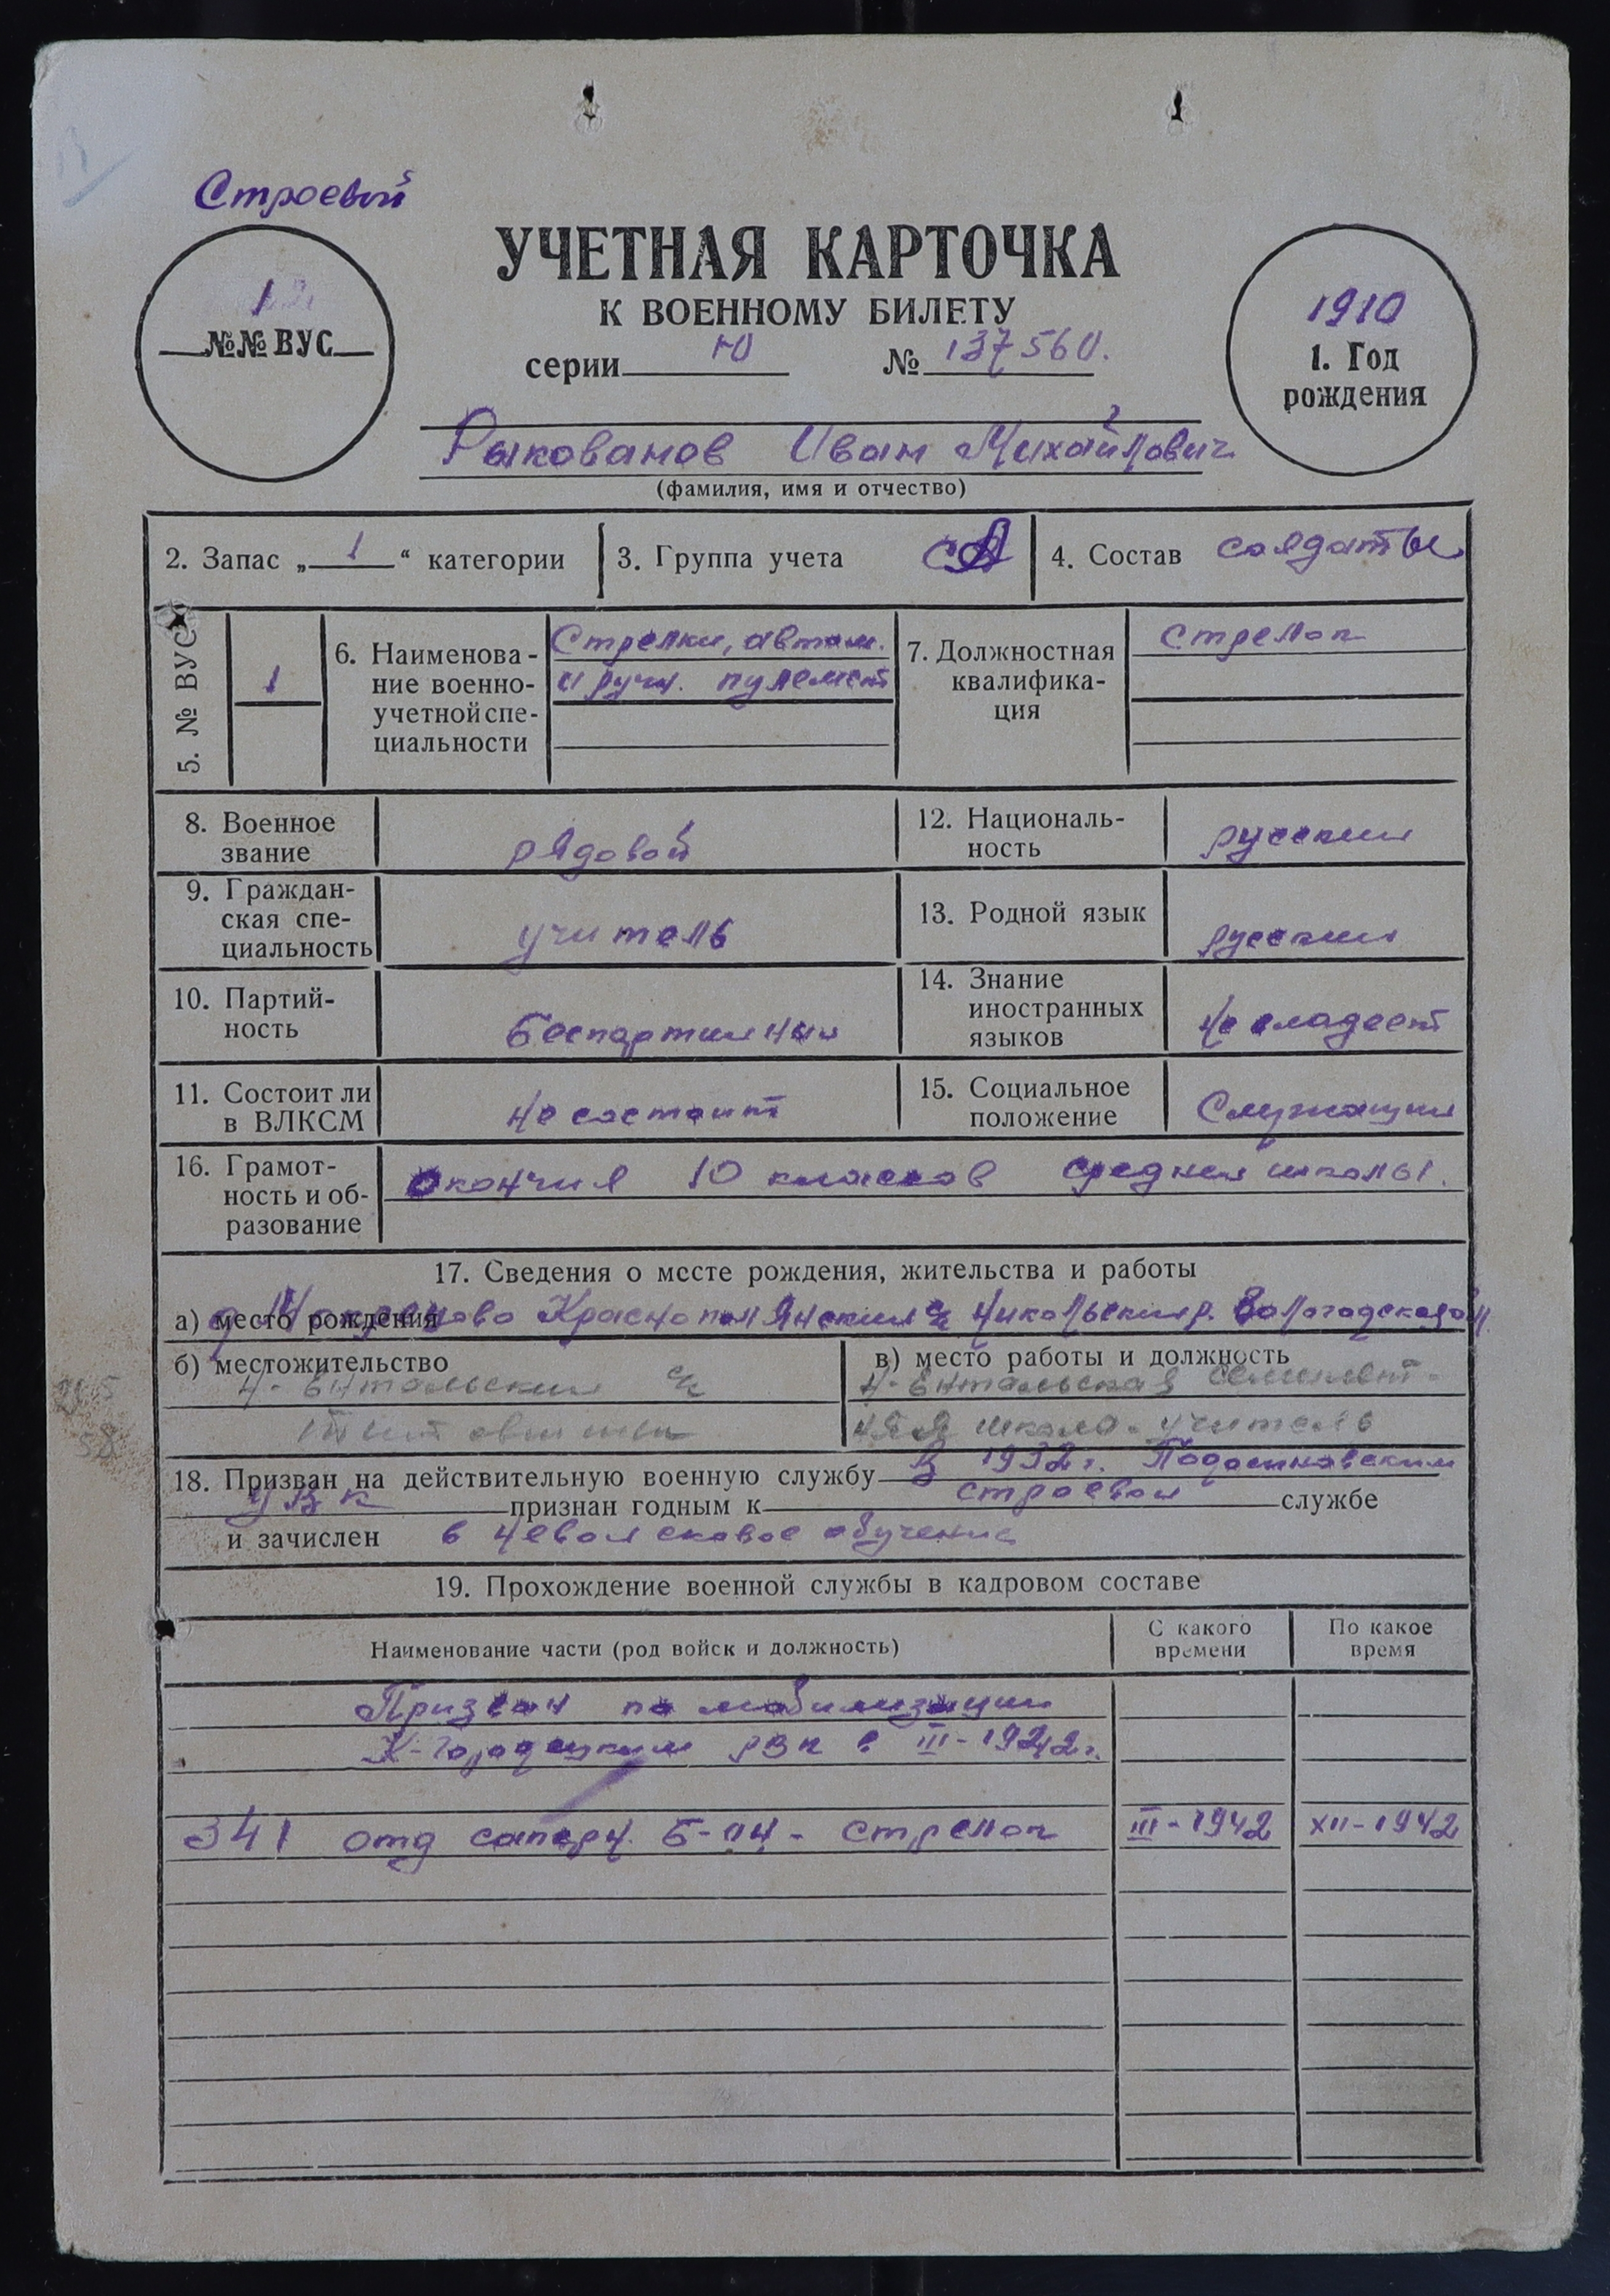 Строевой
УЧЕТНАЯ КАРТОЧКА
К ВОЕННОМУ БИЛЕТУ
серии Ю № 137560.
1
№№ ВУС
1910
1. Год
рождения
Рыкованов Иван Михайлович
(фамилия, имя и отчество)
2. Запас „ 1 “ категории
3. Группа учета СА
4. Состав солдаты
5. № ВУС
1
6. Наименова-
ние военно-
учетной спе-
циальности
Стрелки, автом.
и ручн. пулемет
7. Должностная
квалифика-
ция
стрелок
8. Военное
звание
рядовой
12. Националь-
ность
русский
9. Граждан-
ская спе-
циальность
учитель
13. Родной язык
русский
10. Партий-
ность
беспартийный
14. Знание
иностранных
языков
не владеет
11. Состоит ли
в ВЛКСМ
не состоит
15. Социальное
положение
Служащий
16. Грамот-
ность и об-
разование
окончил 10 классов средней школы.
17. Сведения о месте рождения, жительства и работы
а) место рождения Краснополянский с/с Никольский р. Вологодской обл.
б) местожительство
Н-Ентальский с/с
в) место работы и должность
Н-Ентальская семилет-
няя школа - учитель
18. Призван на действительную военную службу В 1932 г. Подосиновским
УВК признан годным к строевой службе
и зачислен в невойсковое обучение
19. Прохождение военной службы в кадровом составе
Наименование части (род войск и должность)
С какого
времени
По какое
время
Призван по мобилизации
К-Городецким РВК в III-1942 г.
341 отд саперн. б-он - стрелок III-1942 XII-1942